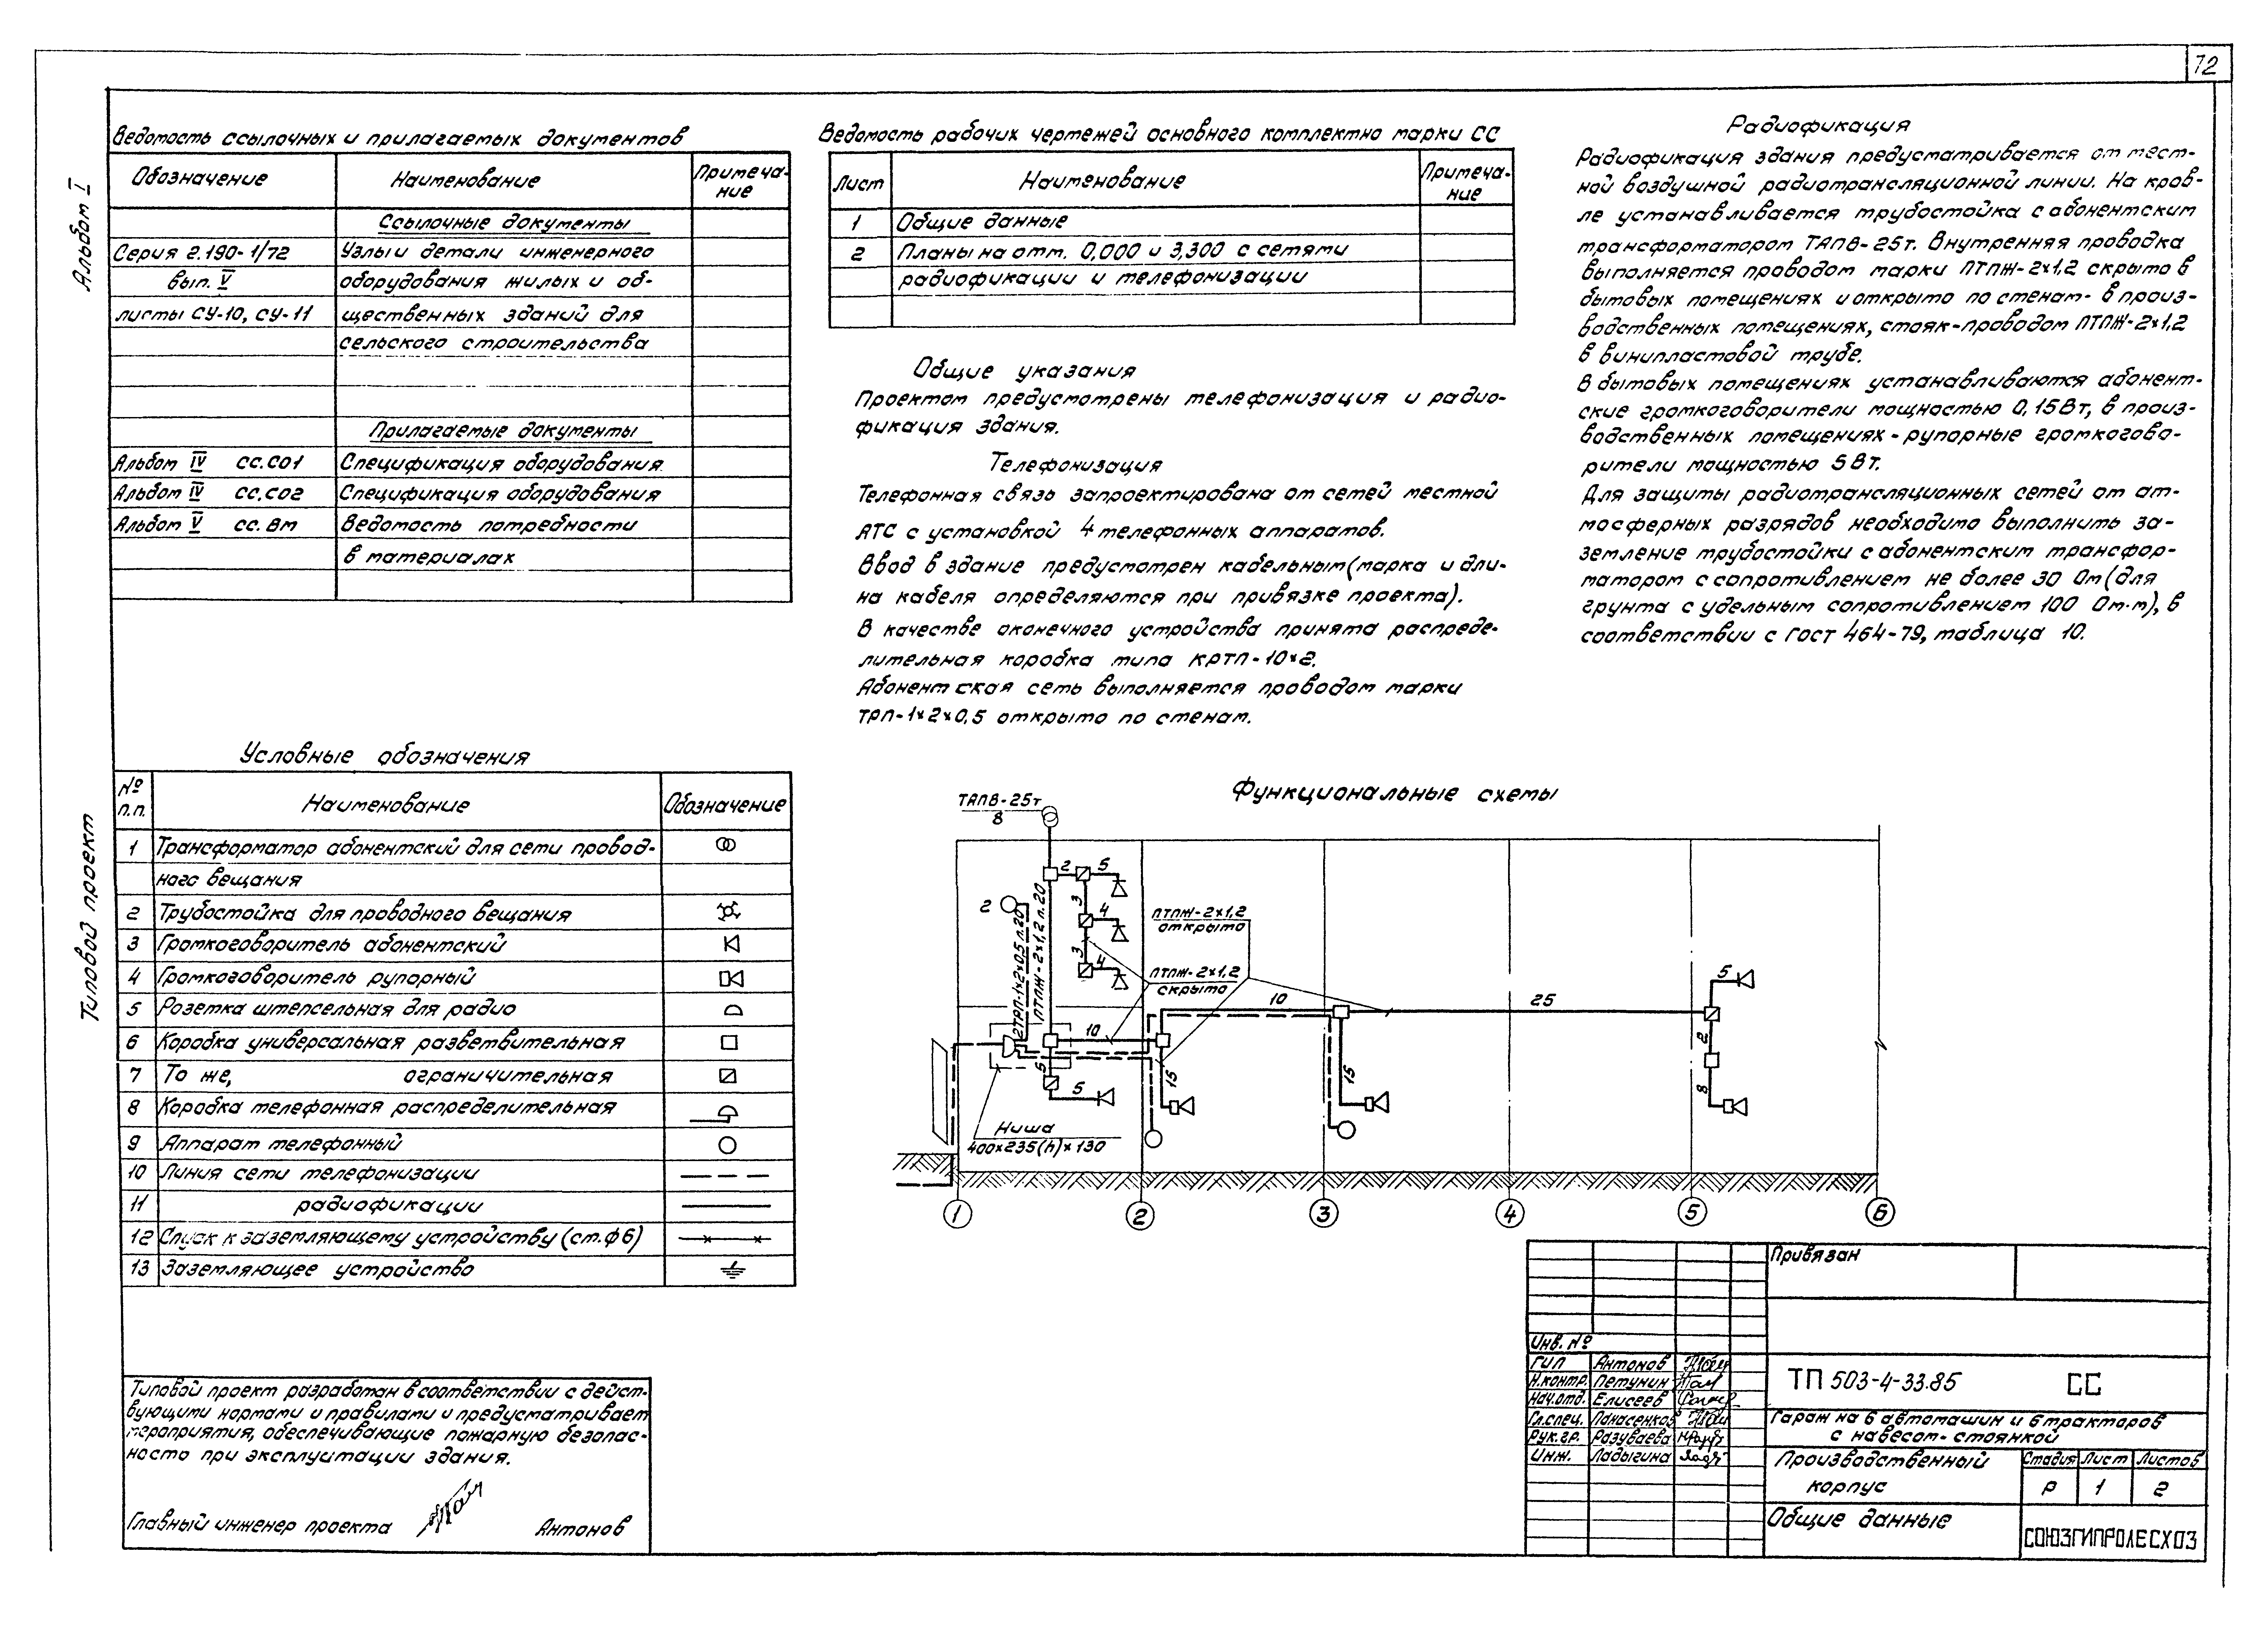 72
Альбом I
Типовой проект
Ведомость ссылочных и прилагаемых документов
Обозначение Наименование Примеча-
ние
Ссылочные документы
Серия 2.190-1/72 Узлы и детали инженерного
вып. V оборудования жилых и об-
листы СУ-10, СУ-11 щественных зданий для
сельского строительства
Прилагаемые документы
Альбом IV СС.СО1 Спецификация оборудования
Альбом IV СС.СО2 Спецификация оборудования
Альбом V СС.ВМ Ведомость потребности
в материалах
Условные обозначения
№
п.п. Наименование Обозначение
1 Трансформатор абонентский для сети провод-
ного вещания
2 Трубостойка для проводного вещания
3 Громкоговоритель абонентский
4 Громкоговоритель рупорный
5 Розетка штепсельная для радио
6 Коробка универсальная разветвительная
7 То же, ограничительная
8 Коробка телефонная распределительная
9 Аппарат телефонный
10 Линия сети телефонизации
11 радиофикации
12 Спуск к заземляющему устройству (ст.ф6)
13 Заземляющее устройство
Типовой проект разработан в соответствии с дейст-
вующими нормами и правилами и предусматривает
мероприятия, обеспечивающие пожарную безопас-
ность при эксплуатации здания.
Главный инженер проекта Антонов
Ведомость рабочих чертежей основного комплектно марки СС
Лист Наименование Примеча-
ние
1 Общие данные
2 Планы на отм. 0,000 и 3,300 с сетями
радиофикации и телефонизации
Общие указания
Проектом предусмотрены телефонизация и радио-
фикация здания.
Телефонизация
Телефонная связь запроектирована от сетей местной
АТС с установкой 4 телефонных аппаратов.
Ввод в здание предусмотрен кабельным (марка и дли-
на кабеля определяются при привязке проекта).
В качестве оконечного устройства принята распреде-
лительная коробка типа КРТП-10×2.
Абонентская сеть выполняется проводом марки
ТРП-1×2×0,5 открыто по стенам.
Радиофикация
Радиофикация здания предусматривается от мест-
ной воздушной радиотрансляционной линии. На кров-
ле устанавливается трубостойка с абонентским
трансформатором ТАПВ-25т. Внутренняя проводка
выполняется проводом марки ПТПЖ-2×1,2 скрыто в
бытовых помещениях и открыто по стенам- в произ-
водственных помещениях, стояк-проводом ПТПЖ-2×1,2
в винипластовой трубе.
В бытовых помещениях устанавливаются абонент-
ские громкоговорители мощностью 0,15Вт, в произ-
водственных помещениях - рупорные громкогово-
рители мощностью 5 Вт.
Для защиты радиотрансляционных сетей от ат-
мосферных разрядов необходимо выполнить за-
земление трубостойки с абонентским трансфор-
матором с сопротивлением не более 30 Ом (для
грунта с удельным сопротивлением 100 Ом·м), в
соответствии с ГОСТ 464-79, таблица 10.
Функциональные схемы
ТАПВ-25т
8
2 5
2
3
4
3
4
2ТРП-1×2×0,5 п.20
ПТПЖ-2×1,2 п.20
ПТПЖ-2×1,2
открыто
ПТПЖ-2×1,2
скрыто
10 25
10
5
5
15
15
5
2
8
Ниша
400×235(h)×130
1 2 3 4 5 6
Привязан
Инв. №
ГИП Антонов
Н.контр. Петунин
Нач.отд. Елисеев
Гл.спец. Панасенков
Рук.гр. Разуваева
Инж. Ладыгина
ТП 503-4-33.85 СС
Гараж на 6 автомашин и 6 тракторов
с навесом-стоянкой
Производственный
корпус
Стадия Лист Листов
Р 1 2
Общие данные
СОЮЗГИПРОЛЕСХОЗ